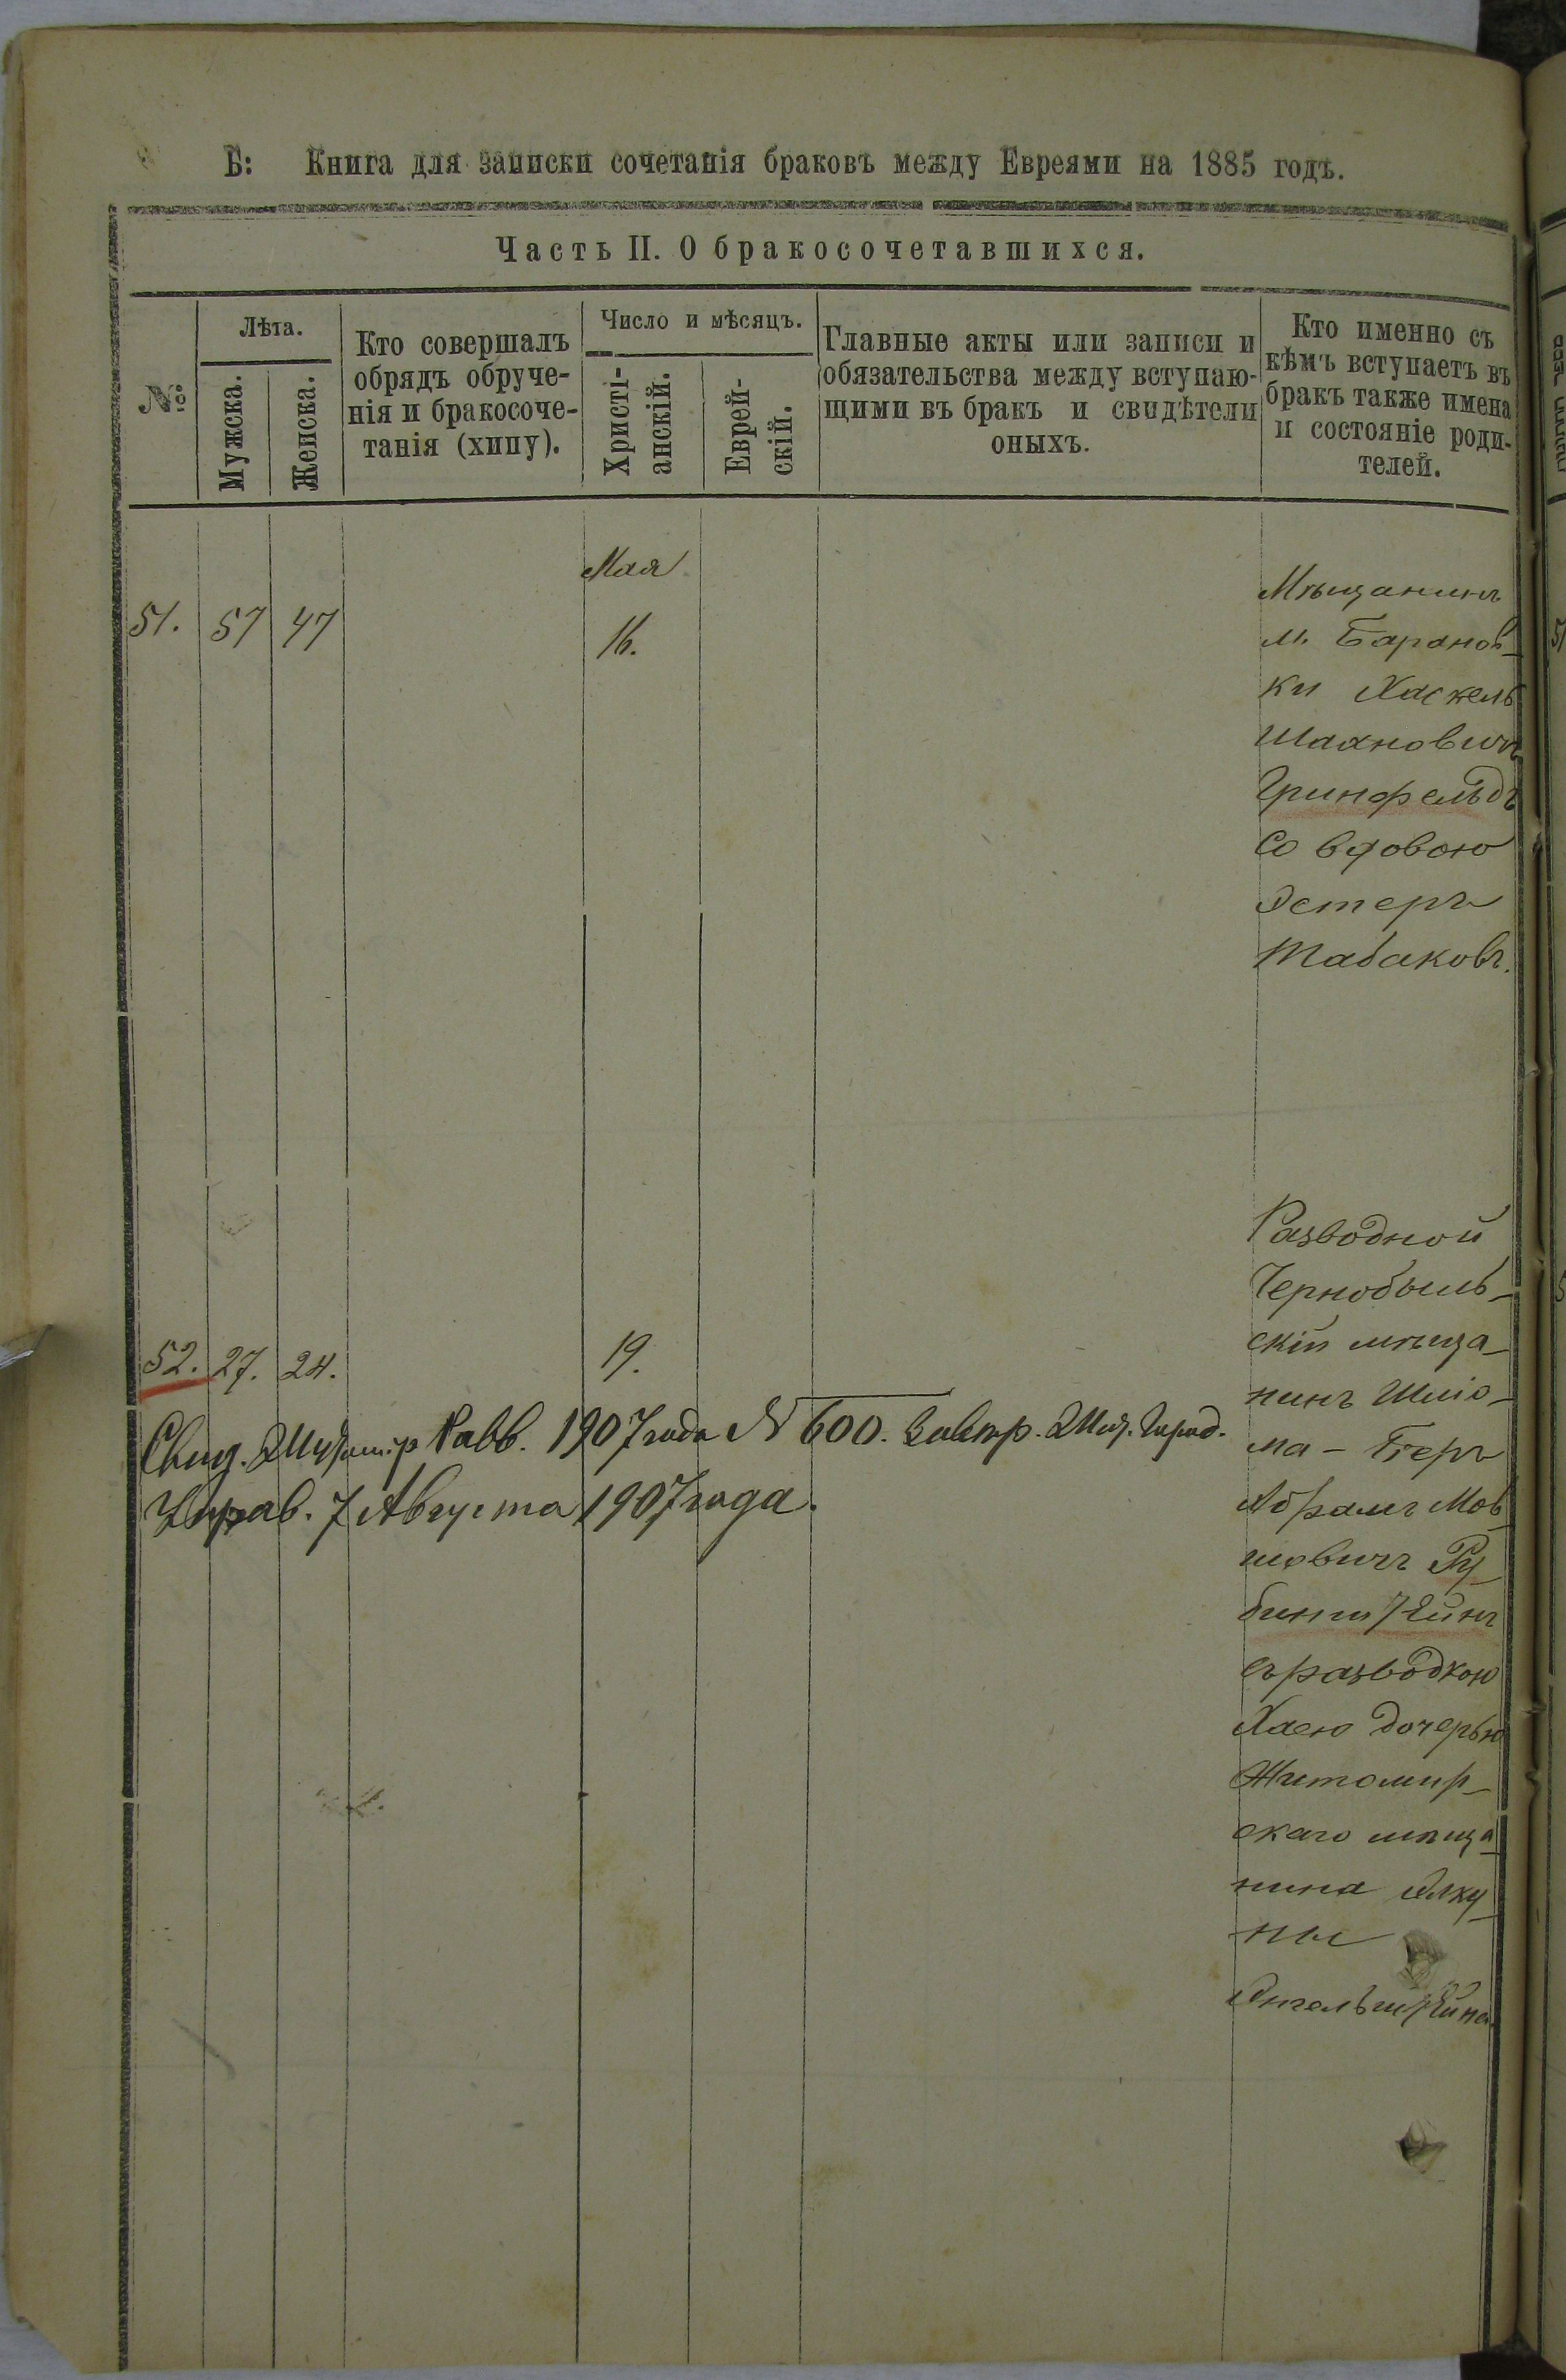 Б: Книга для записки сочетанія браковъ между Евреями на 1885 годъ.
Часть II. О бракосочетавшихся.
№
Лѣта.
Мужска.
Женска.
Кто совершалъ
обрядъ обруче-
нія и бракосоче-
танія (хипу).
Число и мѣсяцъ.
Христі-
анскій.
Еврей-
скій.
Главные акты или записи и
обязательства между вступаю-
щими въ бракъ и свидѣтели
оныхъ.
Кто именно съ
кѣмъ вступаетъ въ
бракъ также имена
и состояніе роди-
телей.
Мая
51. 57 47 16.
Мѣщанинъ
м. Баранов-
ки Хаскель
Шаяновичъ
Гринфельдъ
Со вдовою
Эстеръ
Табаковъ.
52. 27. 24. 19.
Разводной
Чернобыль-
скій мѣща-
нинъ Шлио-
ма - Беръ
Абрамъ Мов-
шовичъ Ру-
бинштейнъ
съ разводкою
Хаею дочерью
Житомир-
скаго мѣща-
нина Элку-
ны
Энгельштейна
Свид. Житомир Равв. 1907 года № 600. Завтр. Жит. Город.
Управ. 7 Августа 1907 года.